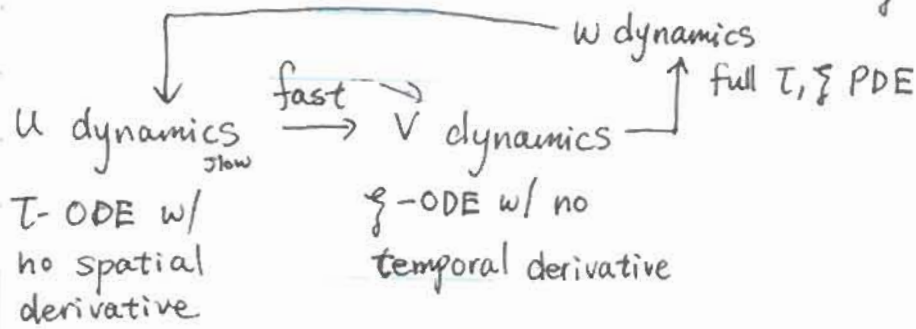 w dynamics
full τ, ξ PDE
fast
u dynamics
slow
v dynamics
τ-ODE w/
no spatial
derivative
ξ-ODE w/ no
temporal derivative